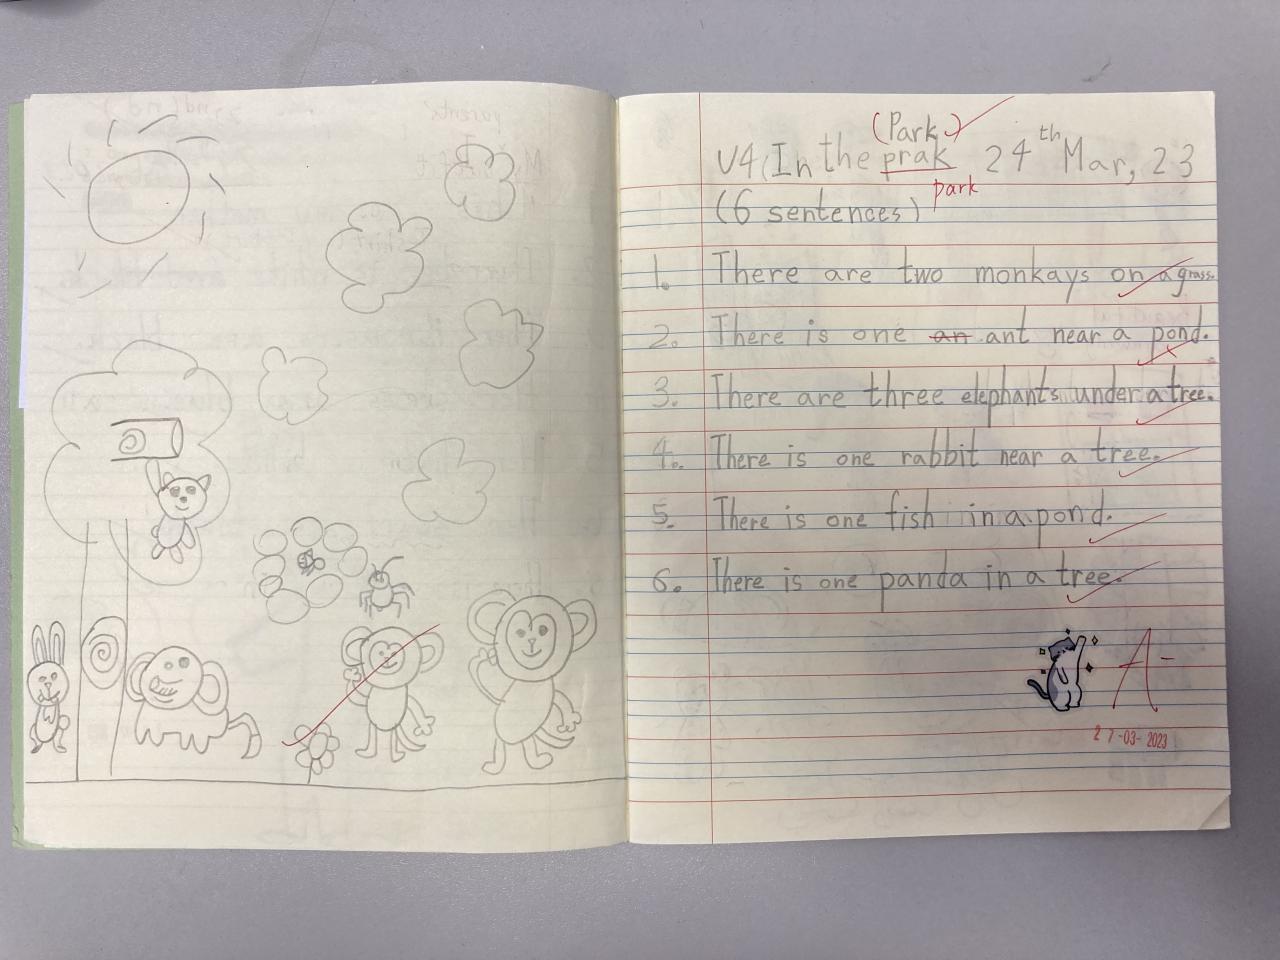 (Park)
V4 In the prak 24th Mar, 23
park
(6 sentences)
1. There are two monkays on a grass.
2. There is one an ant near a pond.
3. There are three elephants under a tree.
4. There is one rabbit near a tree.
5. There is one fish in a pond.
6. There is one panda in a tree.
A-
27-03-2023